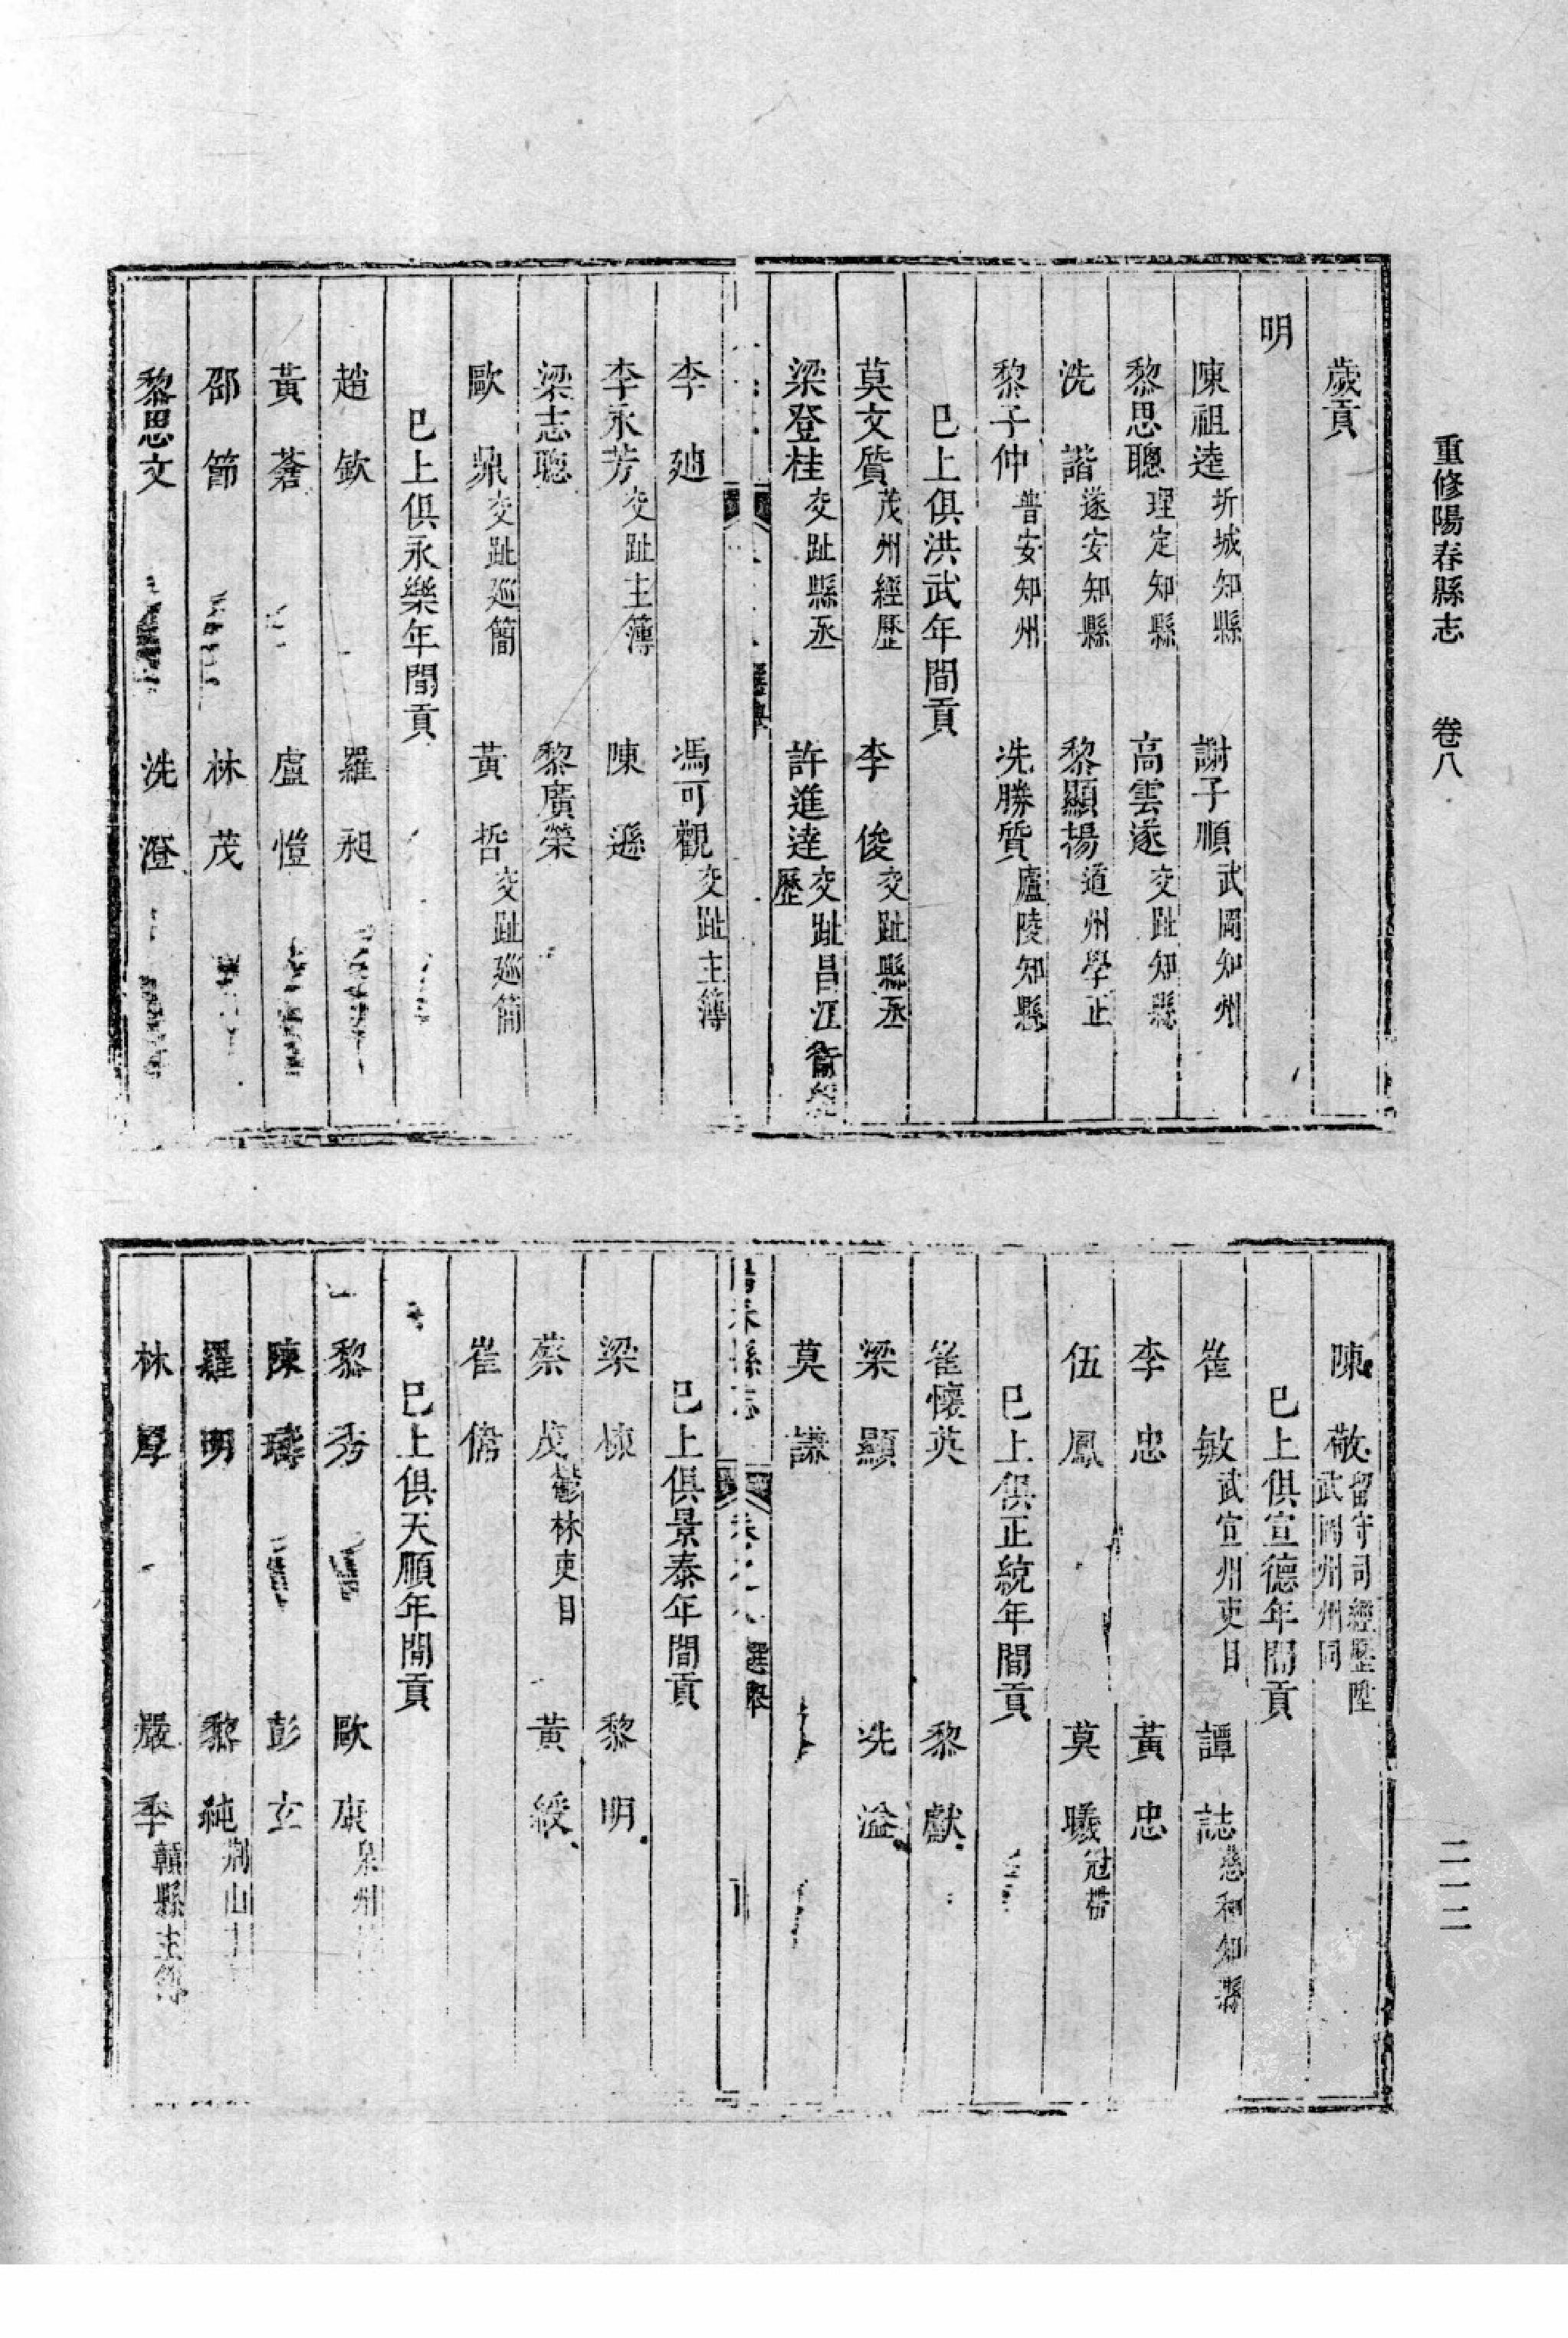 重修陽春縣志 卷八
歲貢
明
陳祖逵 圻城知縣 謝子順 武岡知州
黎思聰 理定知縣 高雲遂 交趾知縣
洗 諧 遂安知縣 黎顯揚 道州學正
黎子仲 普安知州 冼勝質 廬陵知縣
已上俱洪武年間貢
莫文質 茂州經歷 李 俊 交趾縣丞
梁登桂 交趾縣丞 許進達 交趾昌江衛經歷
李 廸 馮可觀 交趾主簿
李永芳 交趾主簿 陳 遜
梁志聰 黎廣榮
歐 鼎 交趾廵簡 黃 哲 交趾廵簡
已上俱永樂年間貢
趙 欽 羅 昶
黃 蒼 盧 愷
邵 節 林 茂
黎思文 洗 澄
陳 敬 留守司經歷陞武岡州州同
已上俱宣德年間貢
崔 敏 武宣州吏目 譚 誌 慈和知縣
李 忠 黃 忠
伍 鳳 莫 曦 冠帶
已上俱正統年間貢
崔懷英 黎 獻
梁 顯 冼 溢
莫 謙
陽春縣志 卷之八 選舉
已上俱景泰年間貢
梁 棟 黎 明
蔡 茂 鬱林吏目 黃 綬
崔 儋
已上俱天順年間貢
黎 秀 歐 康 泉州
陳 璹 彭 玄
羅 明 黎 純 荆山
林 厚 嚴 季 贛縣主簿
二一二